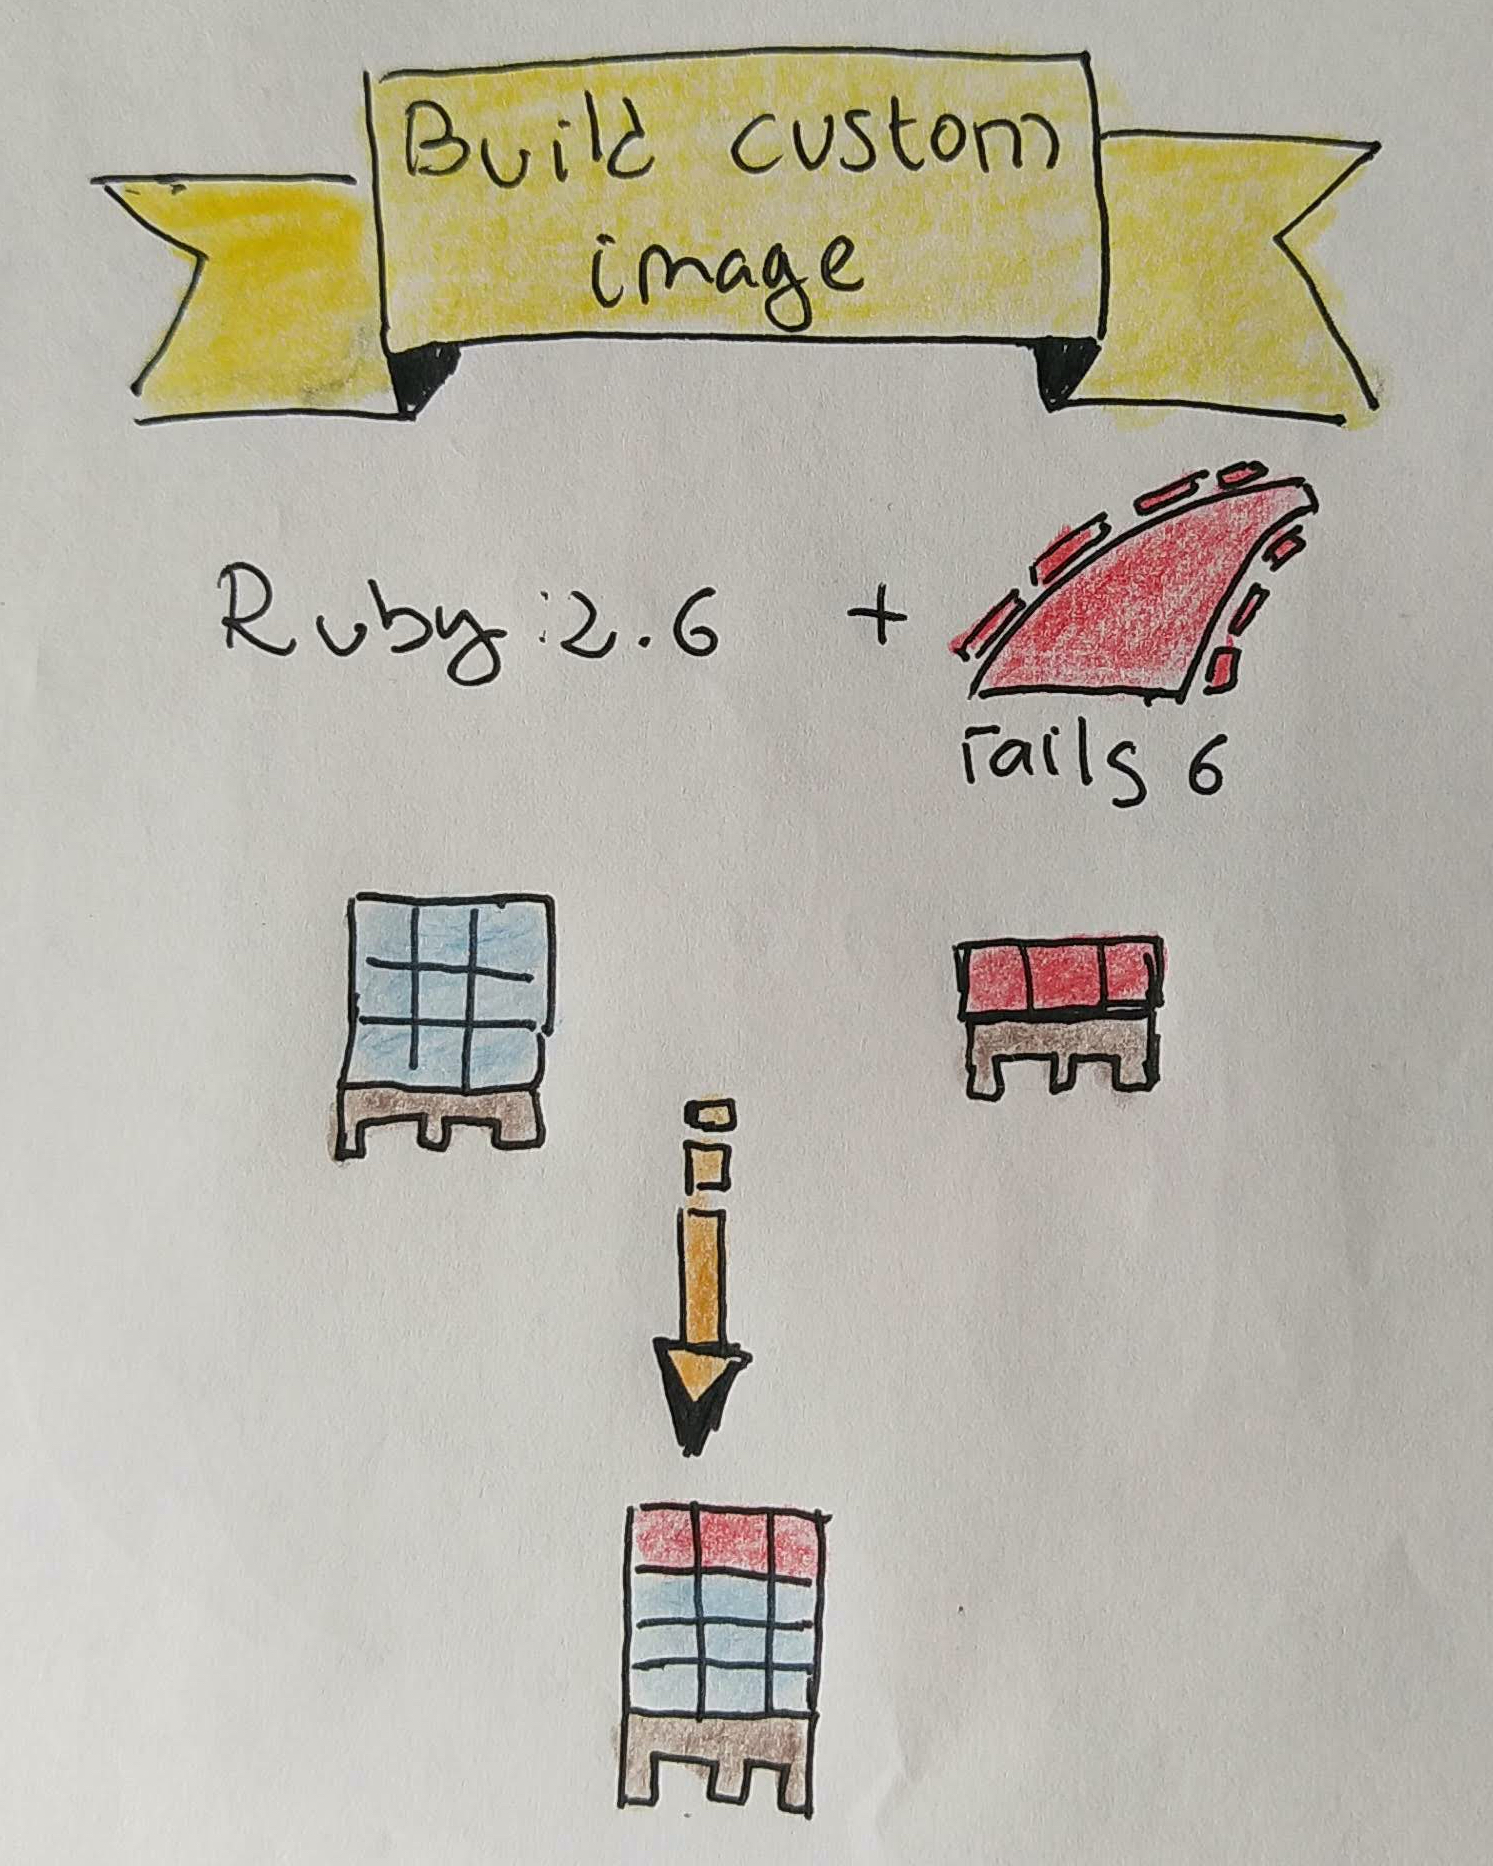 Build custom
image
Ruby:2.6 +
rails 6